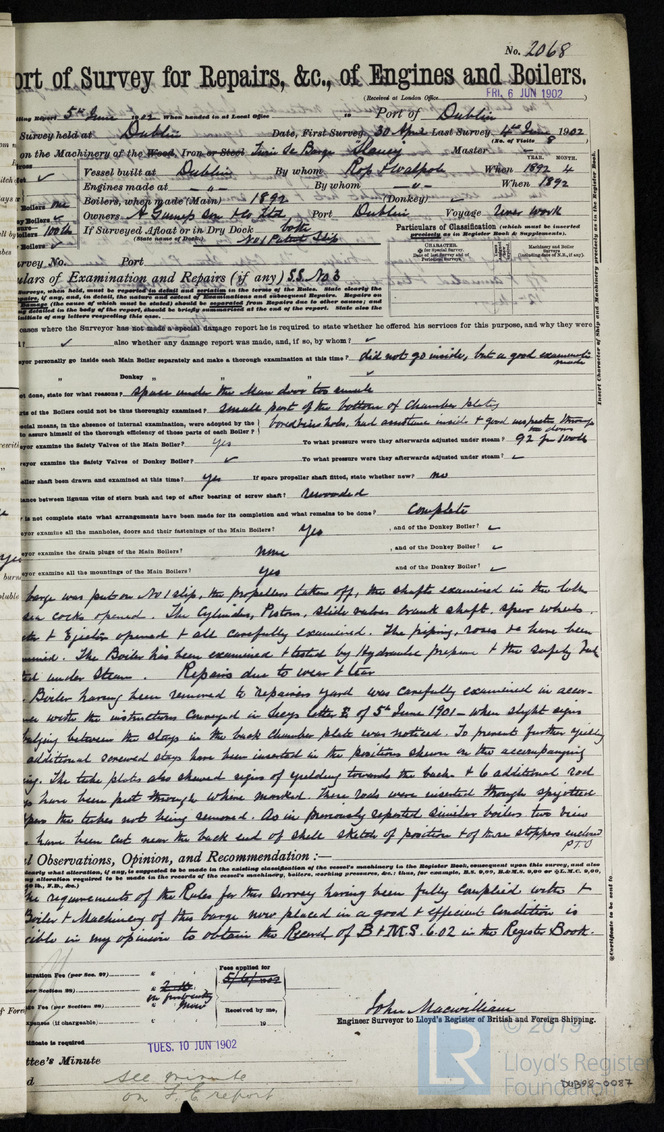 No. 2068
ort of Survey for Repairs, &c., of Engines and Boilers.
(Received at London Office
FRI. 6 JUN 1902
ting Report 5th June 1902 When handed in at Local Office 10 Port of Dublin
Survey held at Dublin Date, First Survey 30 April Last Survey 4th June 1902
(No. of Visits 8
on the Machinery of the Wood, Iron or Steel Twin Sc Barge Slaney Master -
YEAR. MONTH.
Vessel built at Dublin By whom Ross & Walpole When 1892 4
Engines made at " - By whom " - When 1892
Boilers, when made (Main) 1892 (Donkey) ✓
Owners A Guiness Son & Co Ltd. Port Dublin Voyage River Work
If Surveyed Afloat or in Dry Dock both
(State name of Dock.) No 1 Patent Slip
Particulars of Classification (which must be inserted
precisely as in Register Book & Supplements).
CHARACTER.
* for Special Survey.
Date of Last Survey and of
Periodical Surveys
Machinery and Boiler
Surveys
(including date of N.B., if any).
Insert Character of Ship and Machinery precisely as in Register Book.
urvey No. Port
ulars of Examination and Repairs (if any) S.S. No 3
when held, must be reported in detail and seriatim in the terms of the Rules. State clearly the
repairs, if any, and, in detail, the nature and extent of Examinations and subsequent Repairs. Repairs on
Damage (the cause of which must be stated) should be separated from Repairs due to other causes; and
ng detailed in the body of the report, should be briefly summarized at the end of the report. State also the
initials of any letters respecting this case.
cases where the Surveyor has not made a special damage report he is required to state whether he offered his services for this purpose, and why they were
? ✓ also whether any damage report was made, and, if so, by whom? ✓
yor personally go inside each Main Boiler separately and make a thorough examination at this time? did not go inside, but a good examination made
" Donkey " " " ✓
t done, state for what reasons? space under the Man door too small
rts of the Boilers could not be thus thoroughly examined? small part of the bottom of Chamber plates
cial means, in the absence of internal examination, were adopted by the
to assure himself of the thorough efficiency of those parts of each Boiler? bored view holes, had assistance inside & good inspection through
man doors
yor examine the Safety Valves of the Main Boiler? Yes To what pressure were they afterwards adjusted under steam? 92
yor examine the Safety Valves of Donkey Boiler? ✓ To what pressure were they afterwards adjusted under steam? ✓
eller shaft been drawn and examined at this time? yes If spare propeller shaft fitted, state whether new? no
ance between lignum vitæ of stern bush and top of after bearing of screw shaft? rewooded
is not complete state what arrangements have been made for its completion and what remains to be done? Complete
yor examine all the manholes, doors and their fastenings of the Main Boilers? Yes , and of the Donkey Boiler? ✓
yor examine the drain plugs of the Main Boilers? none , and of the Donkey Boiler? ✓
yor examine all the mountings of the Main Boilers? yes and of the Donkey Boiler? ✓
barge was put on No 1 slip, the propellers taken off, the shafts examined in the tube
sea cocks opened. The Cylinders, Pistons, slide valves crank shaft, spur wheels.
& Ejector opened & all carefully examined. The piping, roses &c have been
. The Boiler has been examined & tested by Hydraulic pressure & the safety
ted under Steam. Repairs due to wear & tear
Boiler having been removed to repairers yard was carefully examined in accor-
with the instructions conveyed in Secys letter E of 5th June 1901 - when slight signs
bulging between the stays in the back Chamber plate was noticed. To prevent further yielding
additional screwed stays have been inserted in the positions shewn on the accompanying
ing. The tube plate also shewed signs of yielding towards the back & 6 additional rod
s have been put through where marked. These rods were inserted through spigotted
ppers the tubes not being removed. As in previously reported similar boilers two view
have been cut near the back end of shell sketch of position & of these stoppers enclosed
P.T.O
l Observations, Opinion, and Recommendation :—
clearly what alteration, if any, is suggested to be made in the existing classification of the vessel's machinery in the Register Book, consequent upon this survey, and also
any alteration required to be made in the records of the vessel's machinery, boilers, working pressures, &c.; thus, for example, B.S. 9,00, B.&M.S. 9,00 or L.M.C. 9,00,
lb., F.D., &c.)
The requirements of the Rules for this survey having been fully complied with &
Boiler & Machinery of this barge now placed in a good & efficient Condition is
eligible in my opinion to obtain the Record of B & M.S. 6.02 in the Register Book.
Certificate to be sent to
stration Fee (per Sec. 27) £
per Section 28) £
e Fee (per Section 28) £
xpenses (if chargeable) £
Fees applied for
5/6/1902
Received by me,
19
John Macwilliam
Engineer Surveyor to Lloyd's Register of British and Foreign Shipping.
tificate is required
ttee's Minute
TUES. 10 JUN 1902
d
see minute
on F.E report
© 2019
LR
Lloyd's Register
Foundation
DUB98-0087